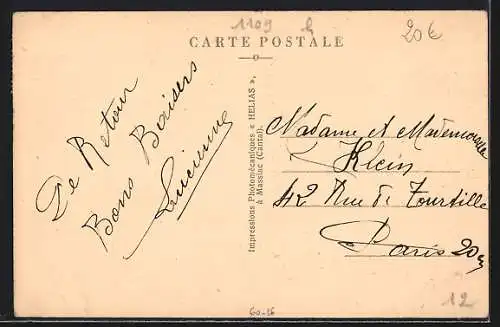 1109
20€
CARTE POSTALE
De Retour
Bons Baisers
Lucienne
Impressions Photomécaniques « HELIAS »,
à Massiac (Cantal).
Madame et Mademoiselle
Klein
42 Rue de Tourtille
Paris 20e
12
60-26